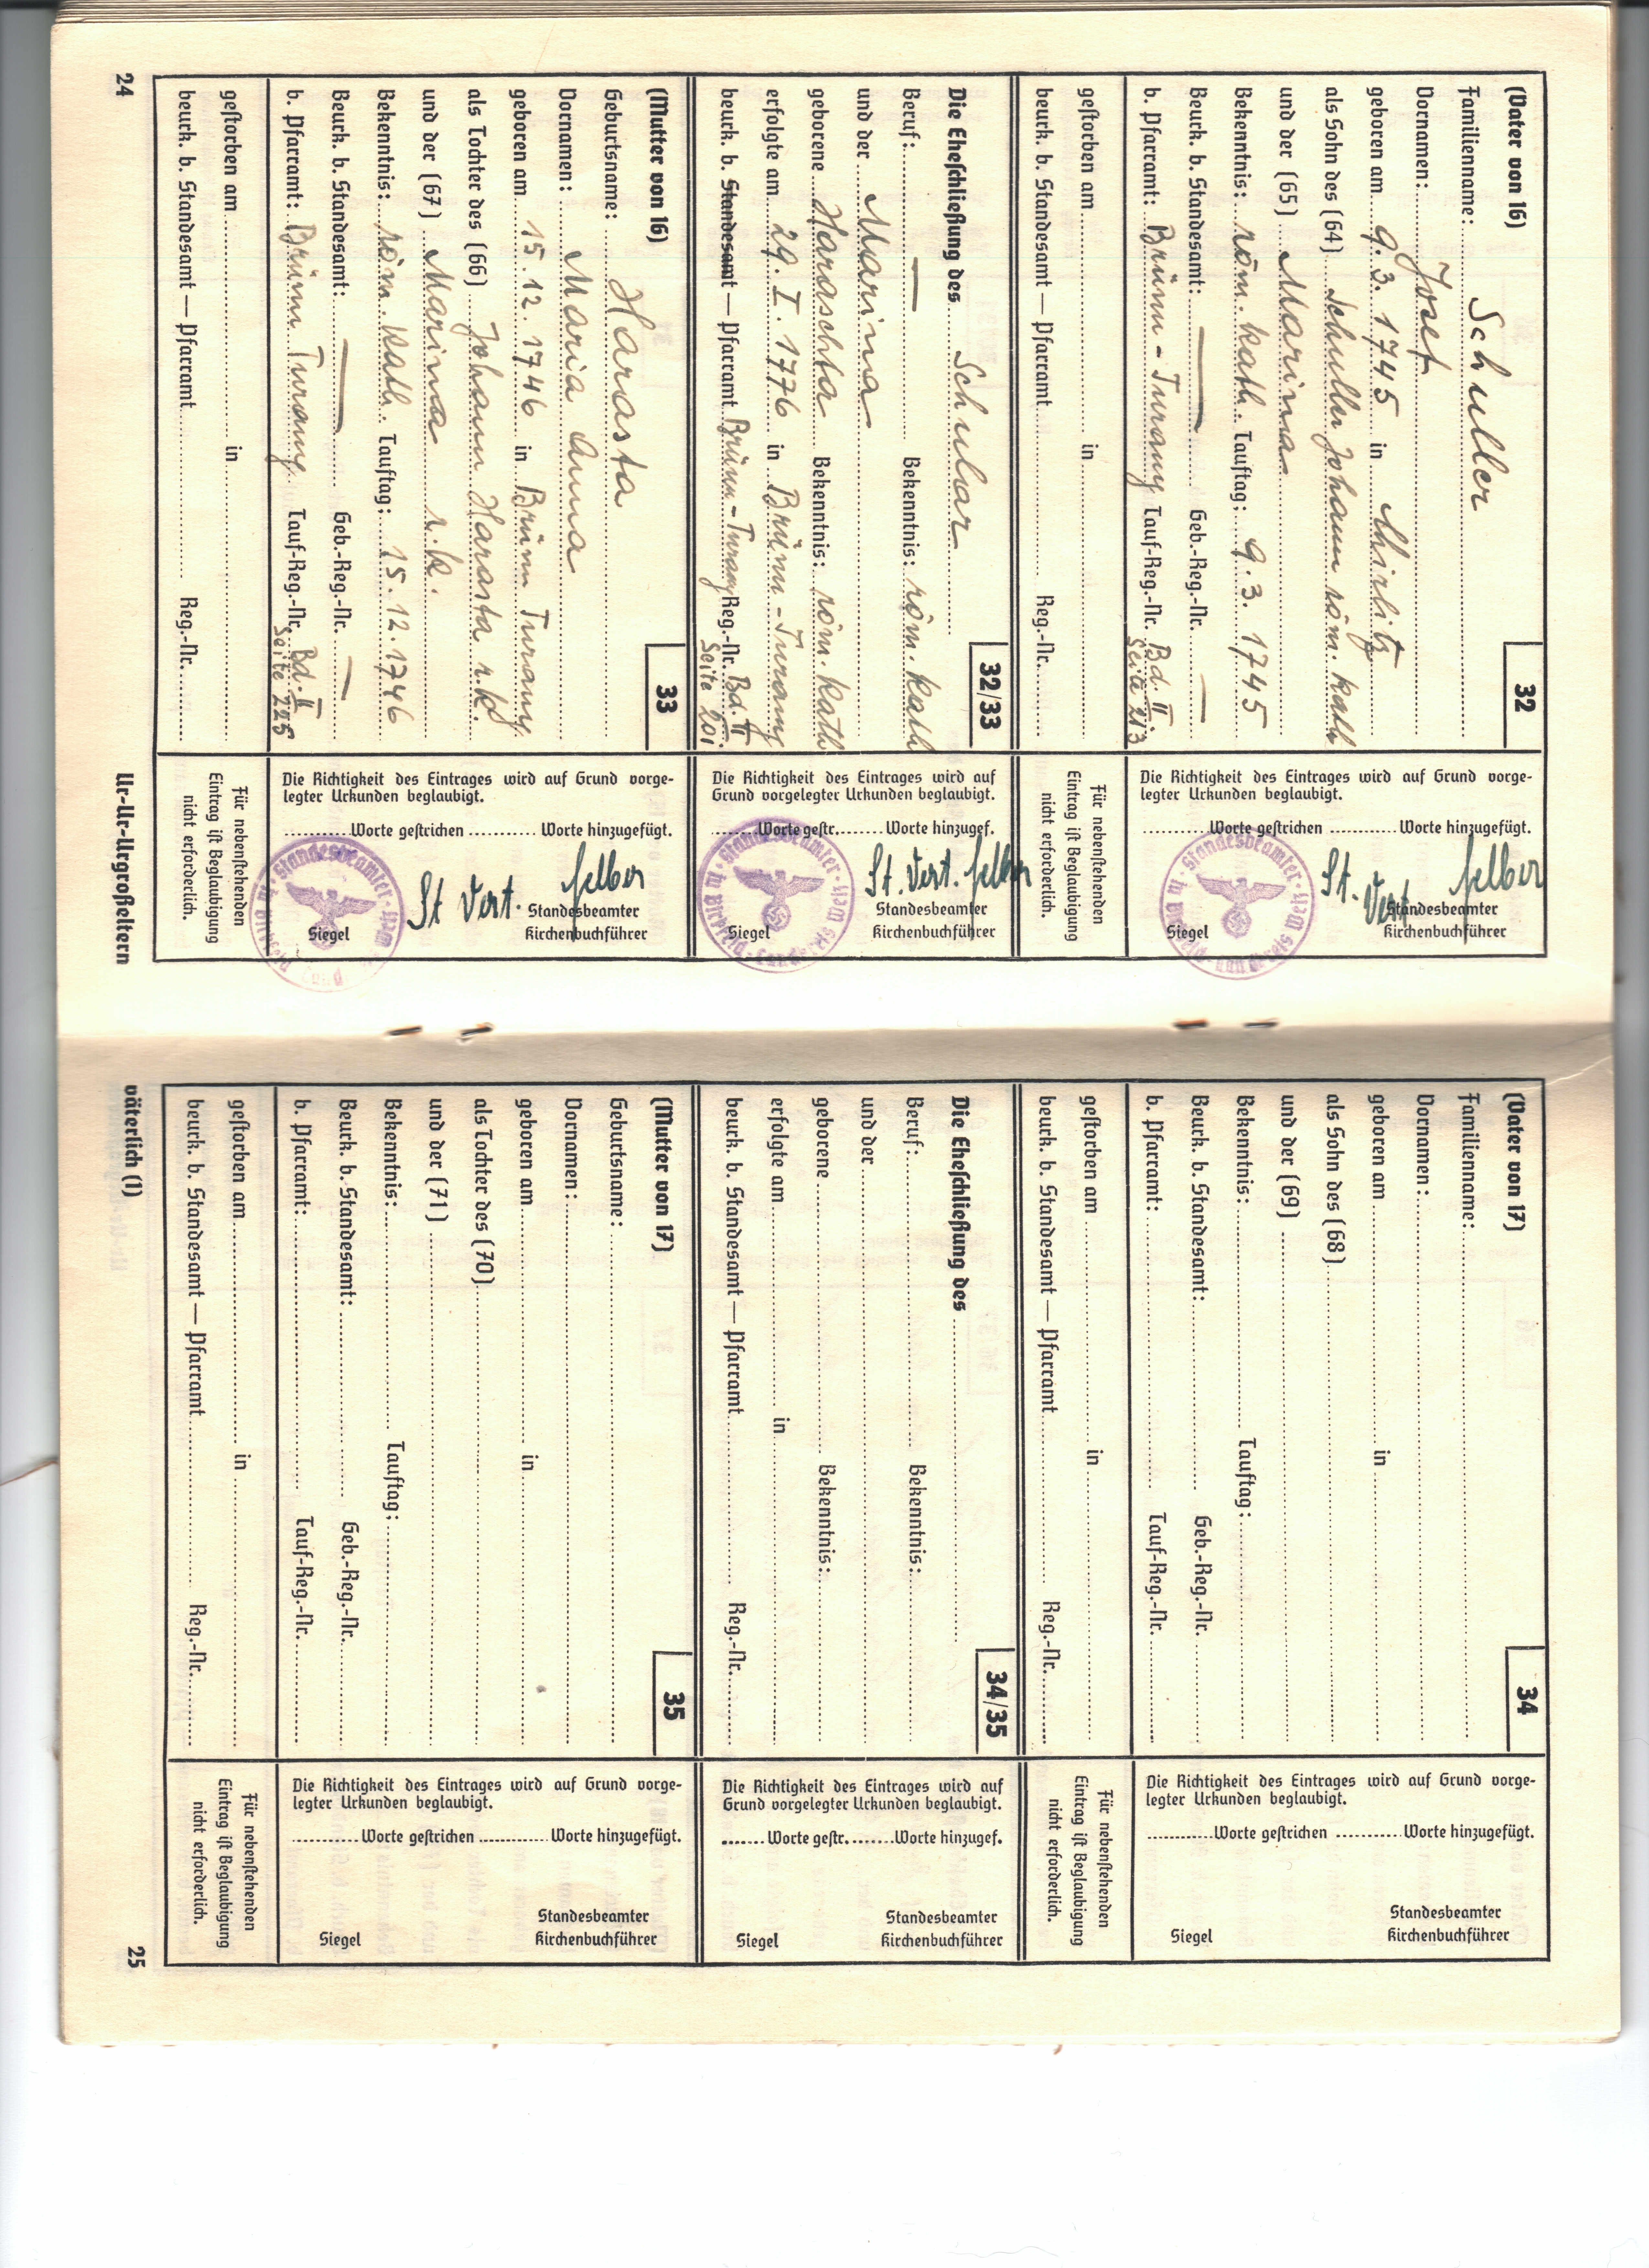 (Vater von 16)
32
Familienname: Schuller
Vornamen: Josef
geboren am 9. 3. 1745 in Mirlitz
als Sohn des (64) Schuller Johann röm. kath
und der (65) Marina
Bekenntnis: röm. kath. Tauftag: 9. 3. 1745
Beurk. b. Standesamt: — Geb.-Reg.-Nr. —
b. Pfarramt: Brünn - Turany Tauf-Reg.-Nr. Bd. II.
Seite 213
gestorben am in
beurk. b. Standesamt — Pfarramt Reg.-Nr.
Die Richtigkeit des Eintrages wird auf Grund vorge-
legter Urkunden beglaubigt.
Worte gestrichen Worte hinzugefügt.
St. Vert. Felber
Standesbeamter
Siegel Kirchenbuchführer
Für nebenstehenden
Eintrag ist Beglaubigung
nicht erforderlich.
32/33
Die Eheschließung des Schular
Beruf: — Bekenntnis: röm. kath
und der Marina
geborene Haraschta Bekenntnis: röm. kath
erfolgte am 29. I. 1776 in Brünn - Turany
beurk. b. Standesamt — Pfarramt Brünn - Turany Reg.-Nr. Bd. II
Seite 201
Die Richtigkeit des Eintrages wird auf
Grund vorgelegter Urkunden beglaubigt.
Worte gestr. Worte hinzugef.
St. Vert. Felber
Standesbeamter
Siegel Kirchenbuchführer
(Mutter von 16)
33
Geburtsname: Harasta
Vornamen: Maria Anna
geboren am 15. 12. 1746 in Brünn Turany
als Tochter des (66) Johann Harasta r.k.
und der (67) Marina r.k.
Bekenntnis: röm. kath. Tauftag: 15. 12. 1746
Beurk. b. Standesamt: — Geb.-Reg.-Nr. —
b. Pfarramt: Brünn Turany Tauf-Reg.-Nr. Bd. II
Seite 225
gestorben am in
beurk. b. Standesamt — Pfarramt Reg.-Nr.
Die Richtigkeit des Eintrages wird auf Grund vorge-
legter Urkunden beglaubigt.
Worte gestrichen Worte hinzugefügt.
St Vert. Felber
Standesbeamter
Siegel Kirchenbuchführer
Für nebenstehenden
Eintrag ist Beglaubigung
nicht erforderlich.
24
Ur-Ur-Urgroßeltern
(Vater von 17)
34
Familienname:
Vornamen:
geboren am in
als Sohn des (68)
und der (69)
Bekenntnis: Tauftag:
Beurk. b. Standesamt: Geb.-Reg.-Nr.
b. Pfarramt: Tauf-Reg.-Nr.
gestorben am in
beurk. b. Standesamt — Pfarramt Reg.-Nr.
Die Richtigkeit des Eintrages wird auf Grund vorge-
legter Urkunden beglaubigt.
Worte gestrichen Worte hinzugefügt.
Standesbeamter
Siegel Kirchenbuchführer
Für nebenstehenden
Eintrag ist Beglaubigung
nicht erforderlich.
34/35
Die Eheschließung des
Beruf: Bekenntnis:
und der
geborene Bekenntnis:
erfolgte am in
beurk. b. Standesamt — Pfarramt Reg.-Nr.
Die Richtigkeit des Eintrages wird auf
Grund vorgelegter Urkunden beglaubigt.
Worte gestr. Worte hinzugef.
Standesbeamter
Siegel Kirchenbuchführer
(Mutter von 17)
35
Geburtsname:
Vornamen:
geboren am in
als Tochter des (70)
und der (71)
Bekenntnis: Tauftag:
Beurk. b. Standesamt: Geb.-Reg.-Nr.
b. Pfarramt: Tauf-Reg.-Nr.
gestorben am in
beurk. b. Standesamt — Pfarramt Reg.-Nr.
Die Richtigkeit des Eintrages wird auf Grund vorge-
legter Urkunden beglaubigt.
Worte gestrichen Worte hinzugefügt.
Standesbeamter
Siegel Kirchenbuchführer
Für nebenstehenden
Eintrag ist Beglaubigung
nicht erforderlich.
väterlich (1)
25